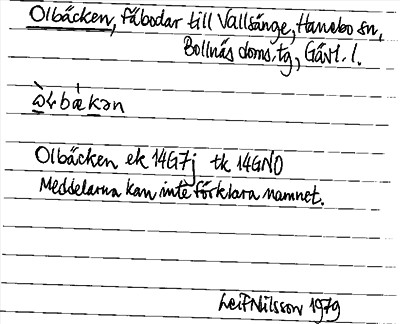 Olbäcken, fäbodar till Vallsänge, Hanebo sn,
Bollnäs doms.tg, Gävl. l.
ὼɫbækən
Olbäcken ek 14G7j tk 14GNO
Meddelarna kan inte förklara namnet.
Leif Nilsson 1979